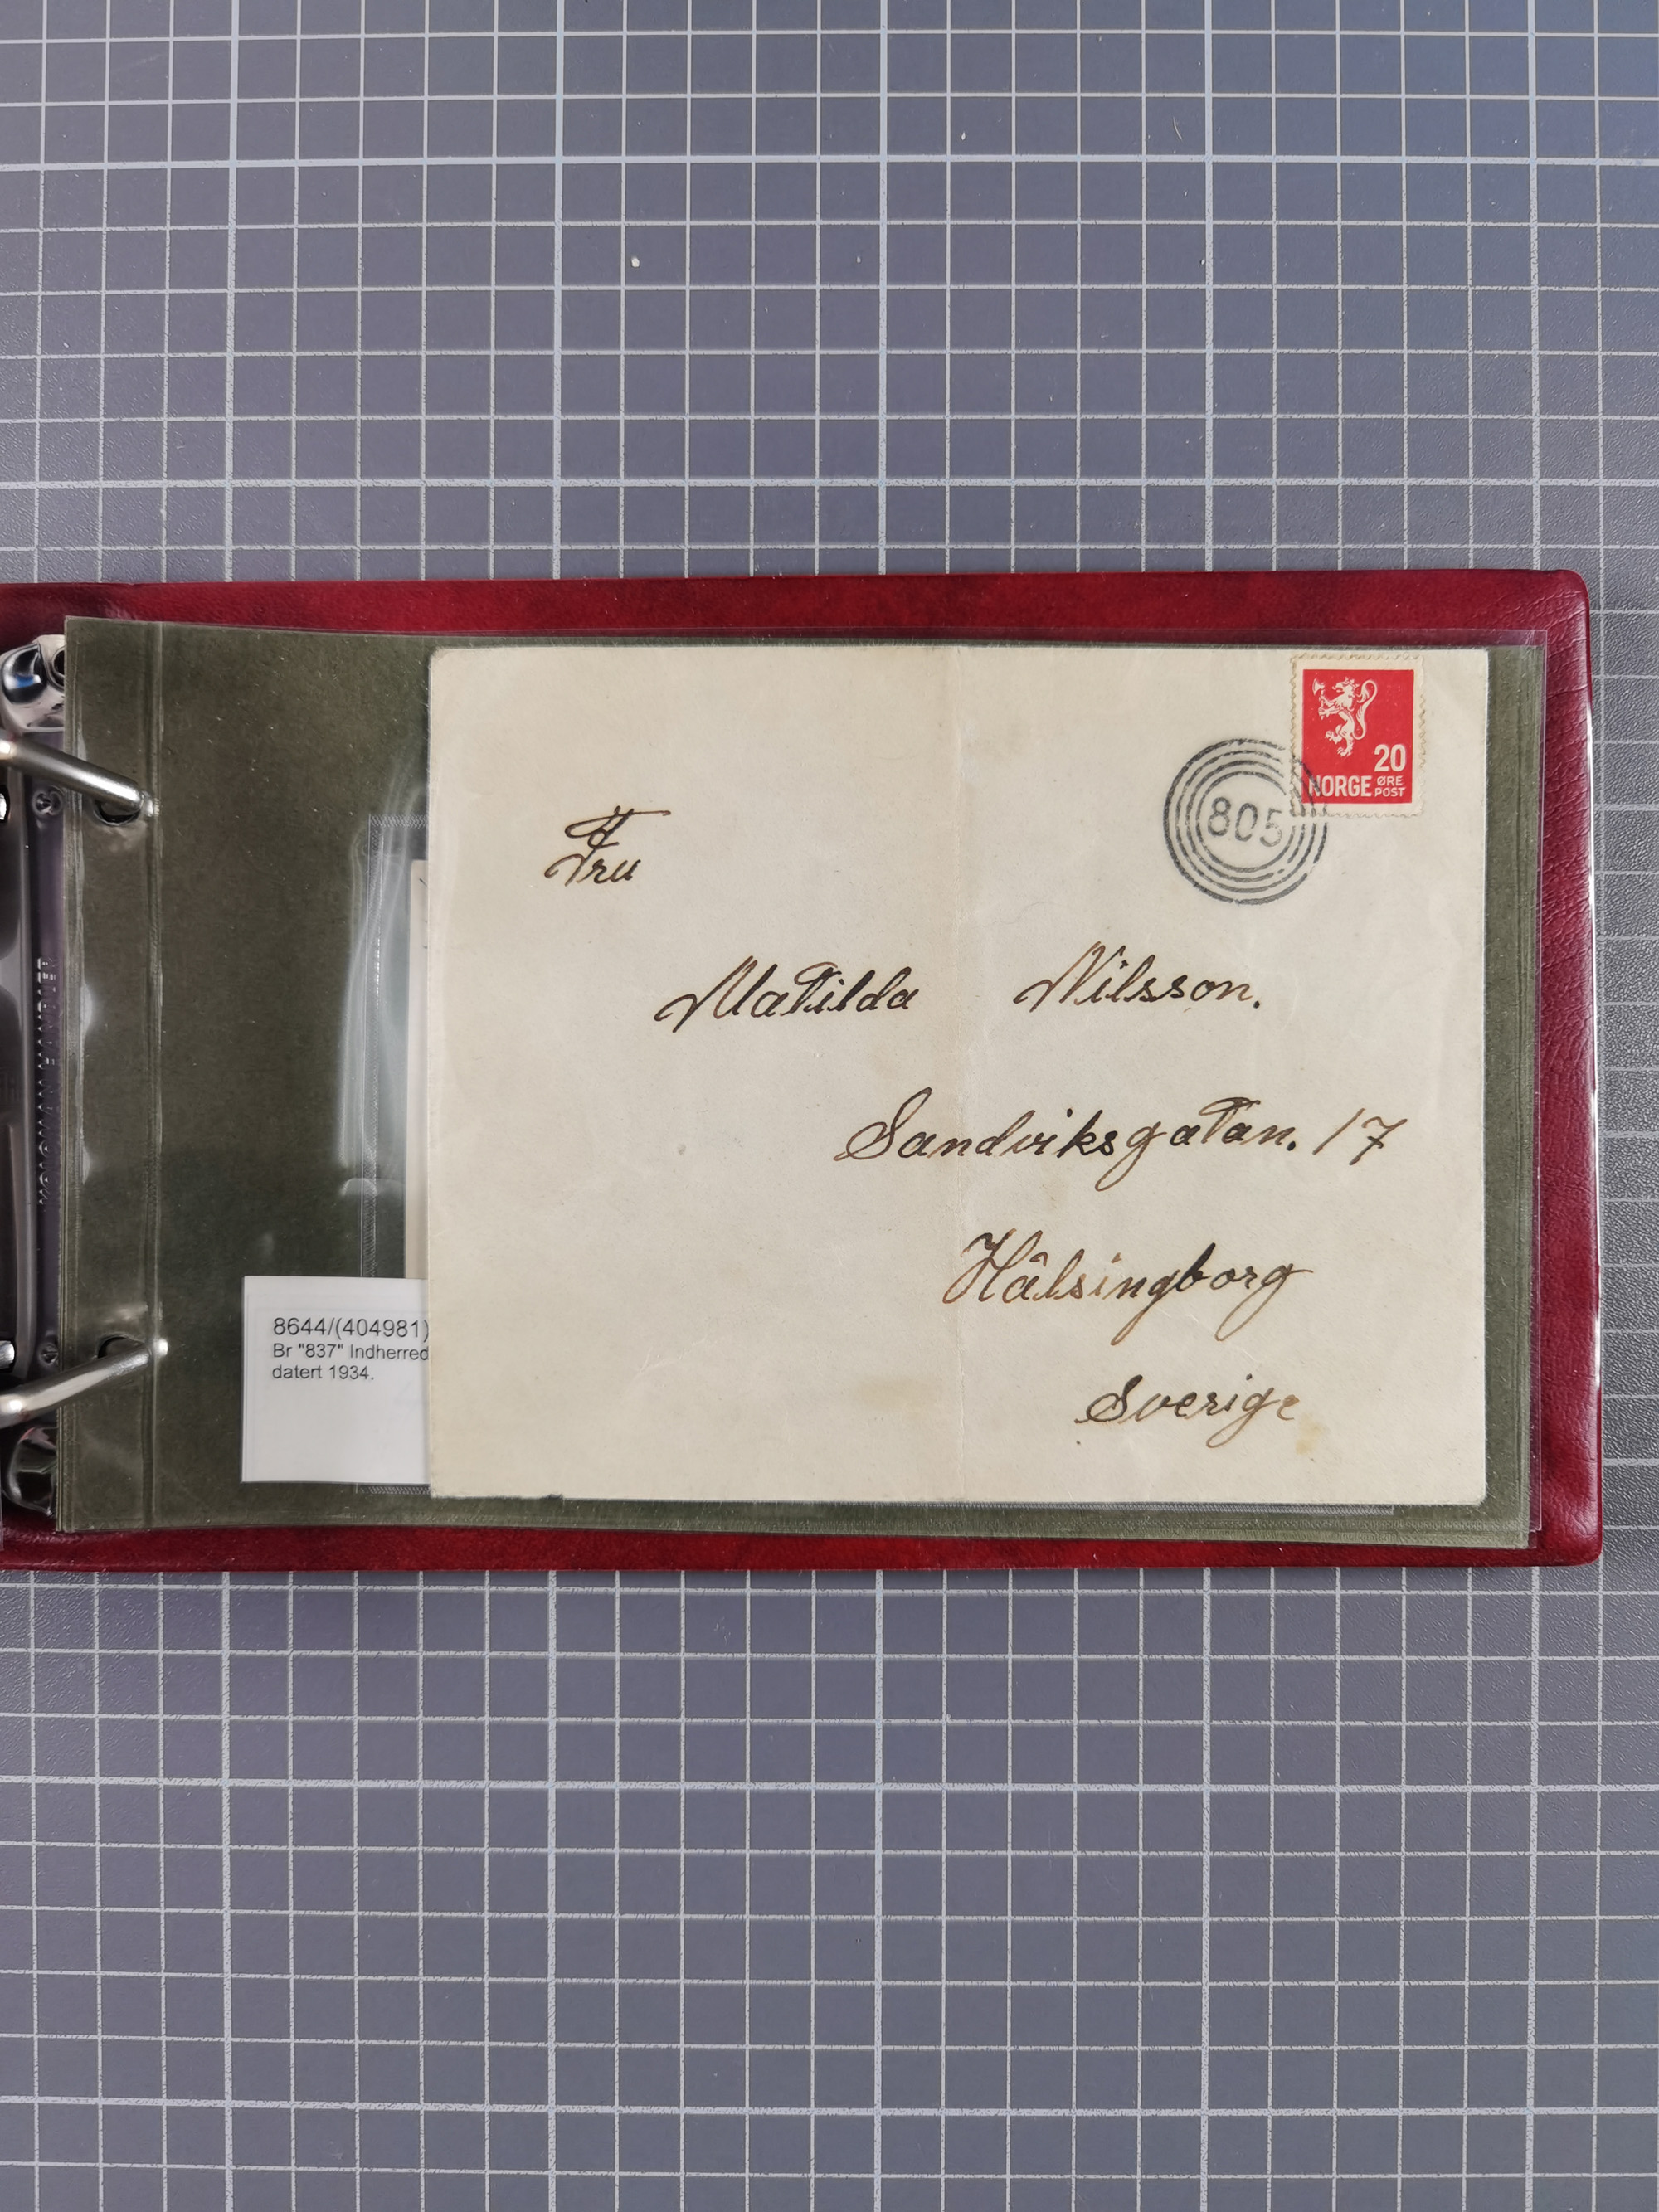 20
NORGE ØRE POST
805
Fru
Matilda Nilsson.
Sandviksgatan. 17
Hälsingborg
Sverige
8644/(404981)
Br "837" Indherred
datert 1934.